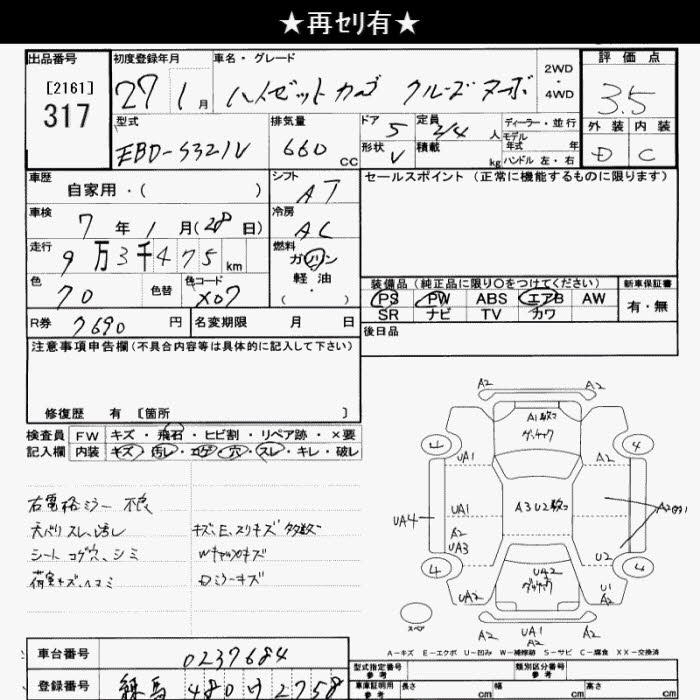 ★再セリ有★
出品番号 初度登録年月 車名・グレード 評価点
[2161]
317
27 1月 ハイゼットカーゴ クルーズターボ 2WD・4WD 3.5
型式 排気量 ドア 5 定員 2/4 人 ディーラー・並行
モデル年式 年 外装 内装
EBD-S321V 660 CC 形状 V 積載 kg ハンドル 左・右 D C
車歴 自家用・( ) シフト AT セールスポイント (正常に機能するものに限ります)
車検 7年 1月(28日) 冷房 AC
走行 9万3千475km 燃料 ガソリン・軽油・( )
色 70 色替 色コード X07
装備品(純正品に限り〇をつけてください) 新車保証書
PS PW ABS エアB AW 有・無
SR ナビ TV カワ
R券 7690円 名変期限 月 日 後日品
注意事項申告欄(不具合内容等は具体的に記入して下さい)
修復歴 有 〔箇所 〕
検査員 FW キズ・飛石・ヒビ割・リペア跡・×要
記入欄 内装 キズ・汚レ・コゲ・穴・スレ・キレ・破レ
右電格ミラー 不良
天バリスレ、汚レ キズ、E、スリキズ多数
シートコゲ穴、シミ Wキャップキズ
荷室キズ、ヘコミ Dミラーキズ
A2 A2
A1数コ
4 4
UA1 A1
A3 U2数コ
UA4 UA1 A2
A2
UA3 U2
4 4
UA2
UA2 U1
A2
スペア
A2 UA1 A2
A2
A-キズ E-エクボ U-凹み W-補修跡 S-サビ C-腐食 XX-交換済
車台番号 0237684
型式指定番号 参考 類別区分番号 参考
登録番号 練馬 480 ウ 2758
車庫証明用 参考 長さ cm 幅 cm 高さ cm